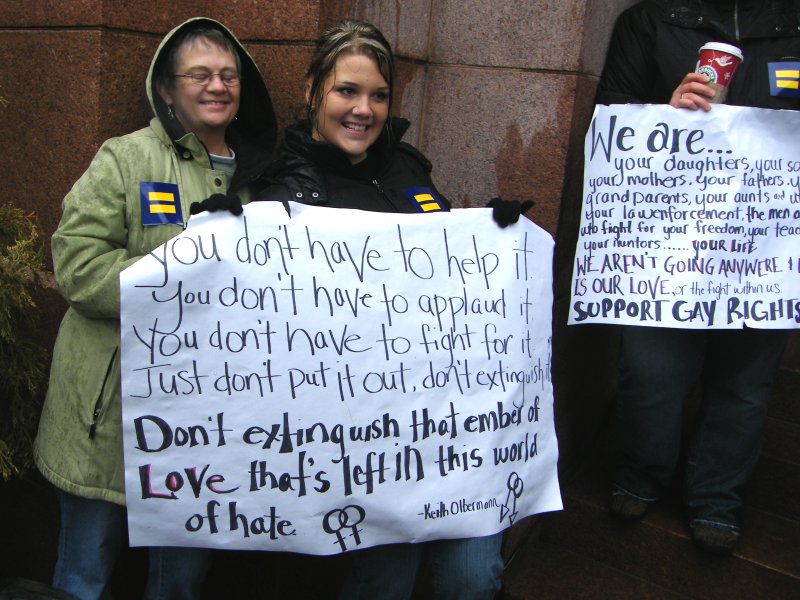 You don't have to help it.
You don't have to applaud it.
You don't have to fight for it.
Just don't put it out, don't extinguish it
Don't extinguish that ember of
Love that's left in this world
of hate.
-Keith Olbermann
We are...
your daughters, your
your mothers, your fathers,
grand parents, your aunts and
your law enforcement, the men
who fight for your freedom, your
your mentors...... YOUR LIFE
WE AREN'T GOING ANYWERE &
IS OUR LOVE, or the fight within us.
SUPPORT GAY RIGHTS